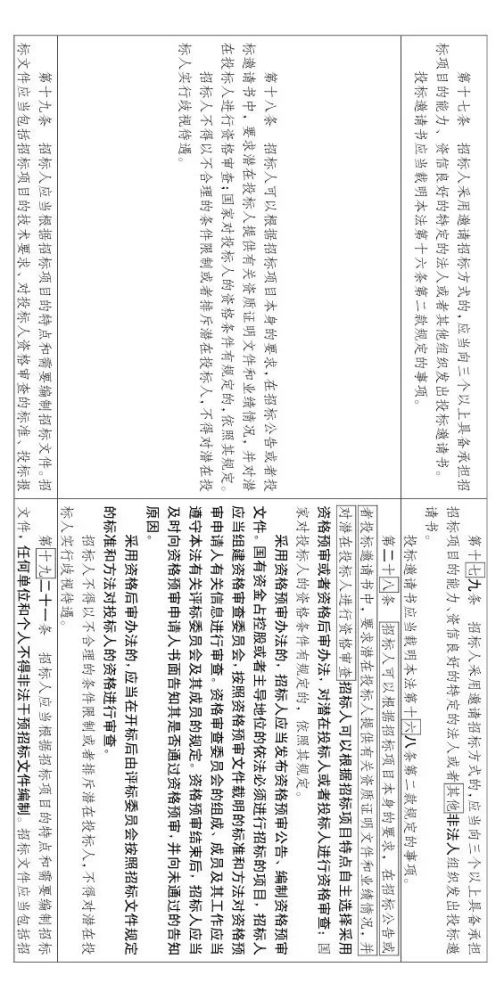 第十七条　招标人采用邀请招标方式的，应当向三个以上具备承担招
标项目的能力、资信良好的特定的法人或者其他组织发出投标邀请书。
投标邀请书应当载明本法第十六条第二款规定的事项。
第十八条　招标人可以根据招标项目本身的要求，在招标公告或者投
标邀请书中，要求潜在投标人提供有关资质证明文件和业绩情况，并对潜
在投标人进行资格审查；国家对投标人的资格条件有规定的，依照其规定。
招标人不得以不合理的条件限制或者排斥潜在投标人，不得对潜在投
标人实行歧视待遇。
第十九条　招标人应当根据招标项目的特点和需要编制招标文件。招
标文件应当包括招标项目的技术要求、对投标人资格审查的标准、投标报
第十七九条　招标人采用邀请招标方式的，应当向三个以上具备承担
招标项目的能力、资信良好的特定的法人或者其他非法人组织发出投标邀
请书。
投标邀请书应当载明本法第十六八条第二款规定的事项。
第二十八条　招标人可以根据招标项目本身的要求，在招标公告或
者投标邀请书中，要求潜在投标人提供有关资质证明文件和业绩情况，并
对潜在投标人进行资格审查招标人可以根据招标项目特点自主选择采用
资格预审或者资格后审办法，对潜在投标人或者投标人进行资格审查；国
家对投标人的资格条件有规定的，依照其规定。
采用资格预审办法的，招标人应当发布资格预审公告、编制资格预审
文件。国有资金占控股或者主导地位的依法必须进行招标的项目，招标人
应当组建资格审查委员会，按照资格预审文件载明的标准和方法对资格预
审申请人有关信息进行审查。资格审查委员会的组成、成员及其工作应当
遵守本法有关评标委员会及其成员的规定。资格预审结束后，招标人应当
及时向资格预审申请人书面告知其是否通过资格预审，并向未通过的告知
原因。
采用资格后审办法的，应当在开标后由评标委员会按照招标文件规定
的标准和方法对投标人的资格进行审查。
招标人不得以不合理的条件限制或者排斥潜在投标人，不得对潜在投
标人实行歧视待遇。
第十九二十一条　招标人应当根据招标项目的特点和需要编制招标
文件，任何单位和个人不得非法干预招标文件编制。招标文件应当包括招